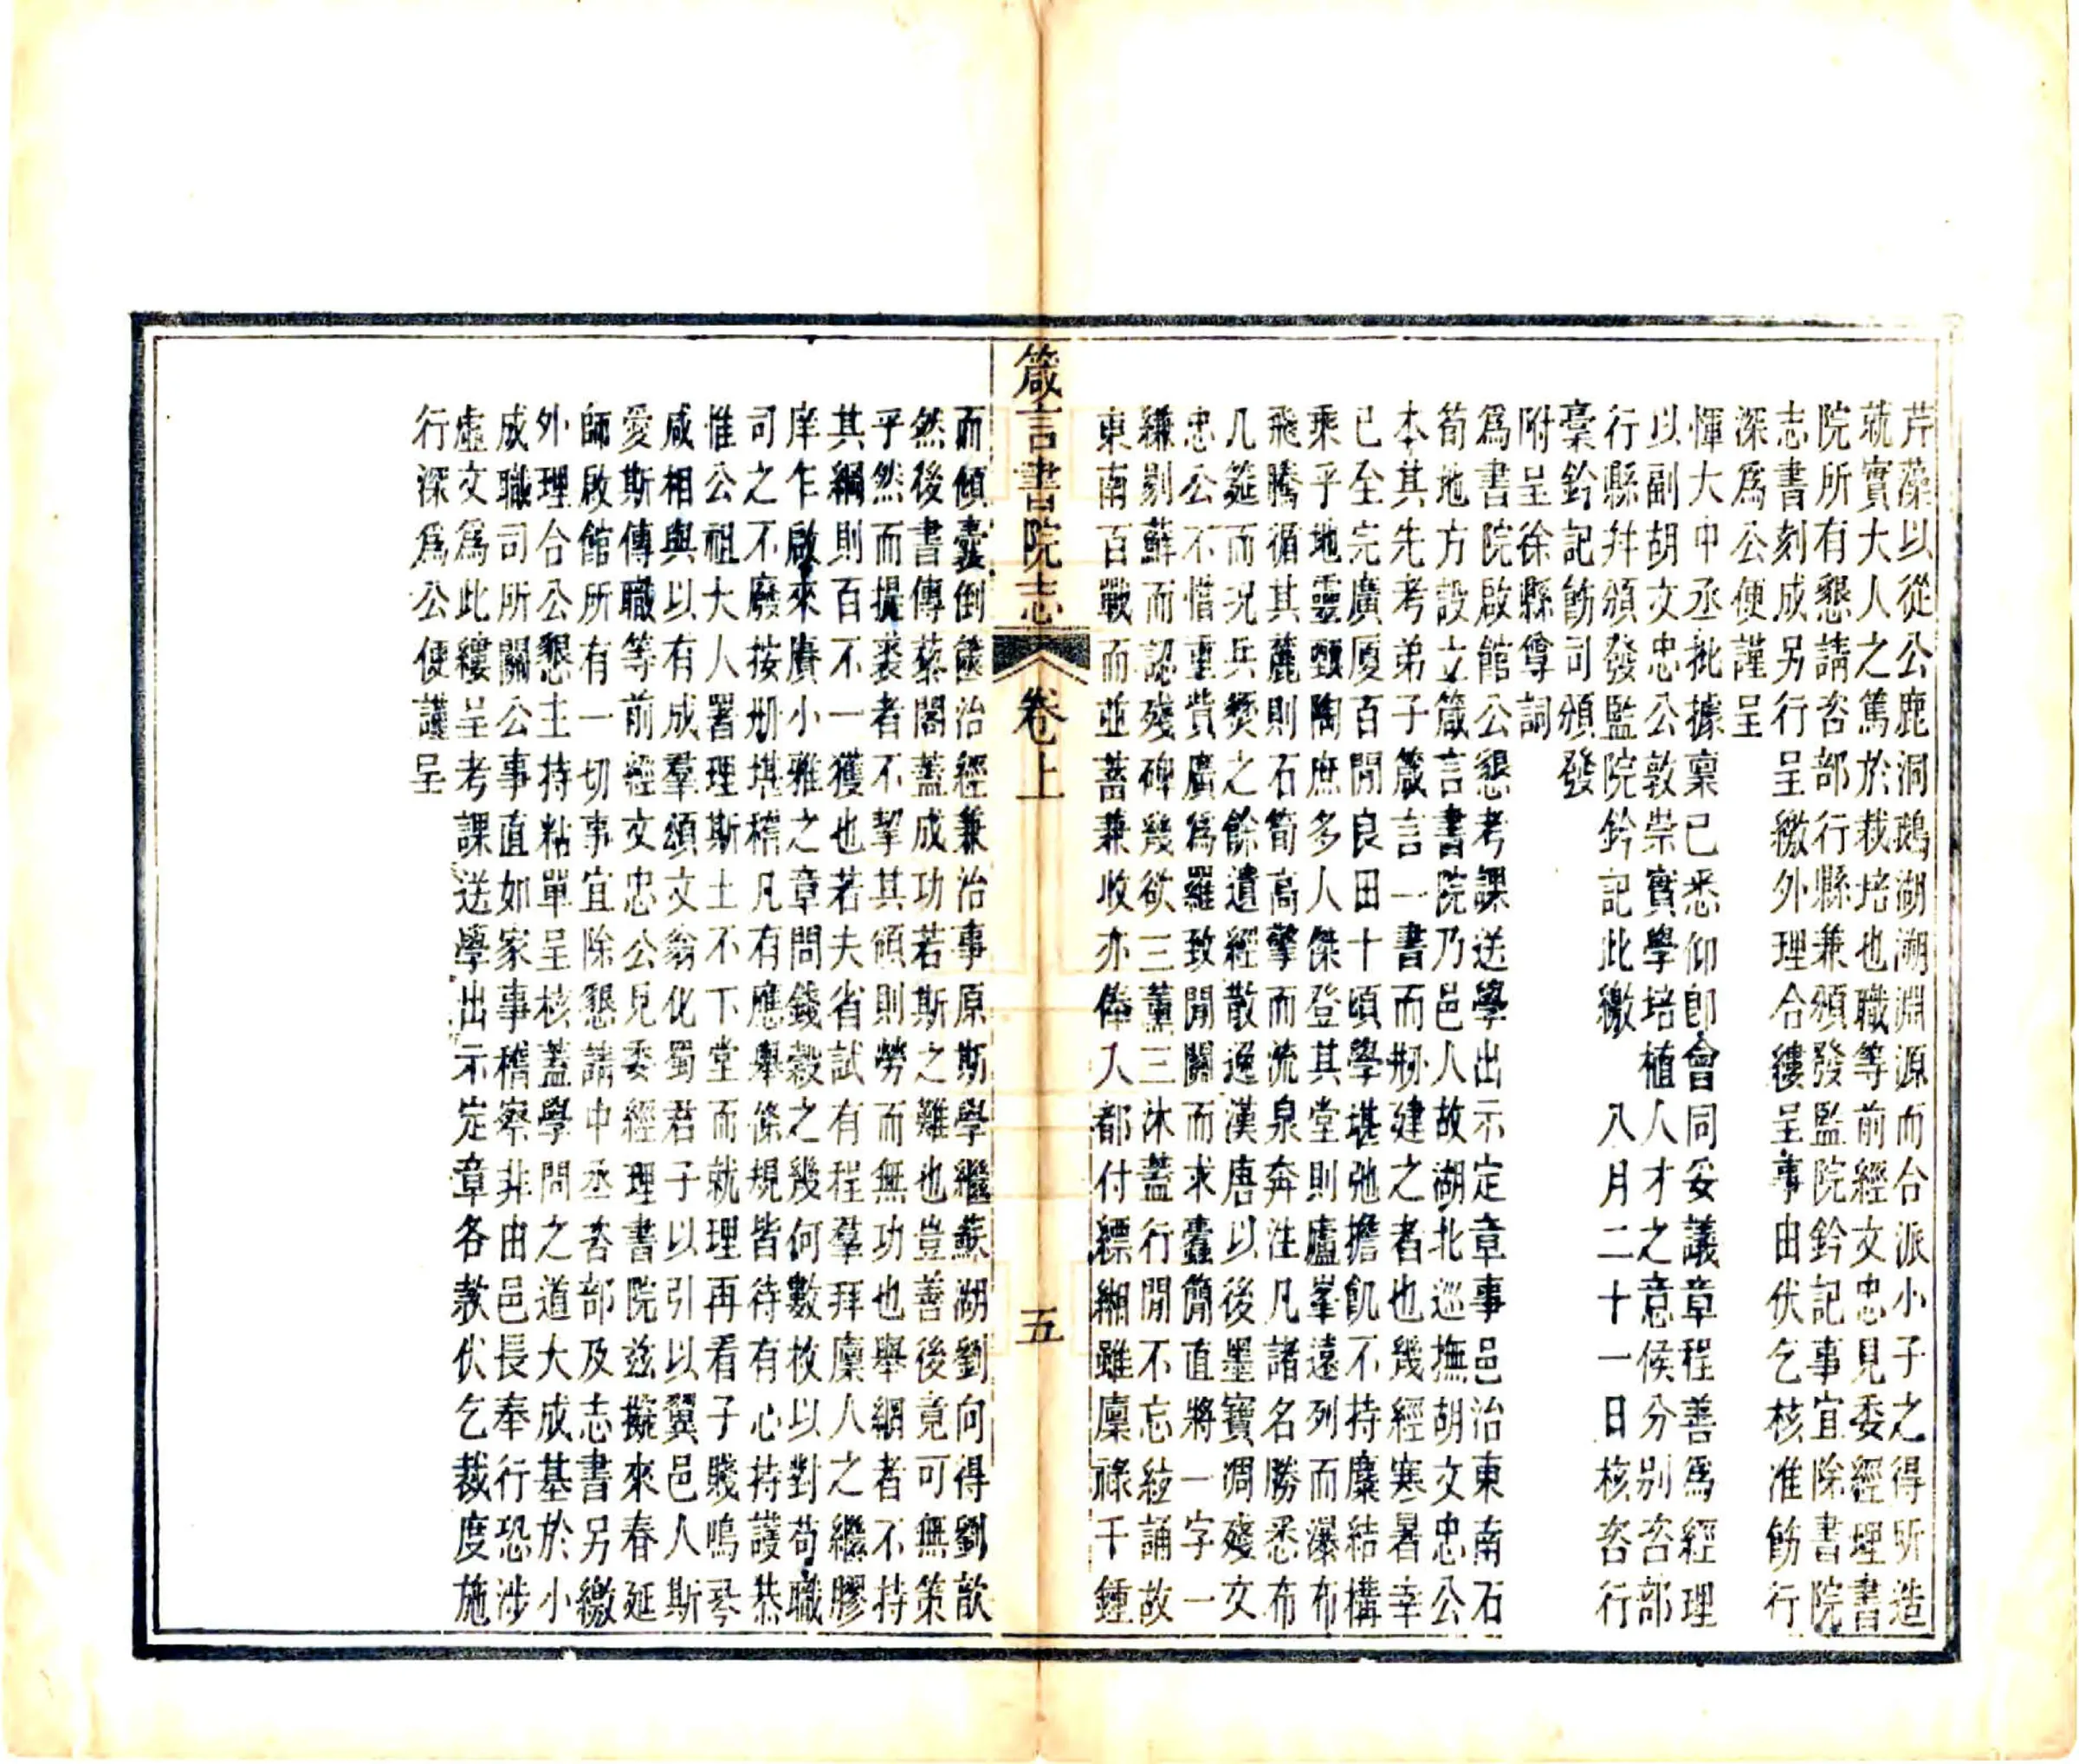 芹藻以從公鹿洞鵝湖溯淵源而台派小子之得所造
就實大人之篤於栽培也職等前經文忠見委經理書
院所有懇請咨部行縣兼頒發監院鈐記事宜除書院
志書刻成另行呈繳外理合縷呈事由伏乞核准飭行
深爲公便謹呈
惲大中丞批據稟已悉仰卽會同妥議章程善爲經理
以副胡文忠公敦崇實學培植人才之意候分别咨部
行縣幷頒發監院鈐記此繳　八月二十一日核咨行
稾鈐記飭司頒發
附呈徐縣尊詞
爲書院啟館公懇考課送學出示定章事邑治東南石
筍地方設立箴言書院乃邑人故湖北巡撫胡文忠公
本其先考弟子箴言一書而剏建之者也幾經寒暑幸
已至完廣厦百間良田十頃學堪弛擔飢不持麋結構
乘乎地靈甄陶庶多人傑登其堂則廬峯遠列而瀑布
飛騰循其麓則石筍高擎而流泉奔注凡諸名勝悉布
几筵而況兵燹之餘遺經散逸漢唐以後墨寶凋殘文
忠公不惜重貲廣爲羅致開闢而求蠹簡直將一字一
縑剔蘚而認殘碑幾欲三薰三沐蓋行閒不忘絃誦故
東南百戰而並蓄兼收亦俸入都付縹緗雖廪祿千鍾
箴言書院志　卷上　五
而傾囊倒篋治經兼治事原斯學繼蘇湖劉向得劉歆
然後書傳藜閣蓋成功若斯之難也豈善後竟可無策
乎然而提裘者不挈其領則勞而無功也舉網者不持
其綱則百不一獲也若夫省試有程羣拜廪人之繼膠
庠乍啟來賡小雅之章問錢穀之幾何數枚以對苟職
司之不廢按册堪稽凡有應舉條規皆待有心持護恭
惟公祖大人署理斯土不下堂而就理再看子賤鳴琴
咸相與以有成羣頌文翁化蜀君子以引以翼邑人斯
愛斯傳職等前經文忠公見委經理書院兹擬來春延
師啟館所有一切事宜除懇請中丞咨部及志書另繳
外理合公懇主持粘單呈核蓋學問之道大成基於小
成職司所關公事直如家事稽察非由邑長奉行恐涉
虛文爲此縷呈考課送學出示定章各款伏乞裁度施
行深爲公便謹呈